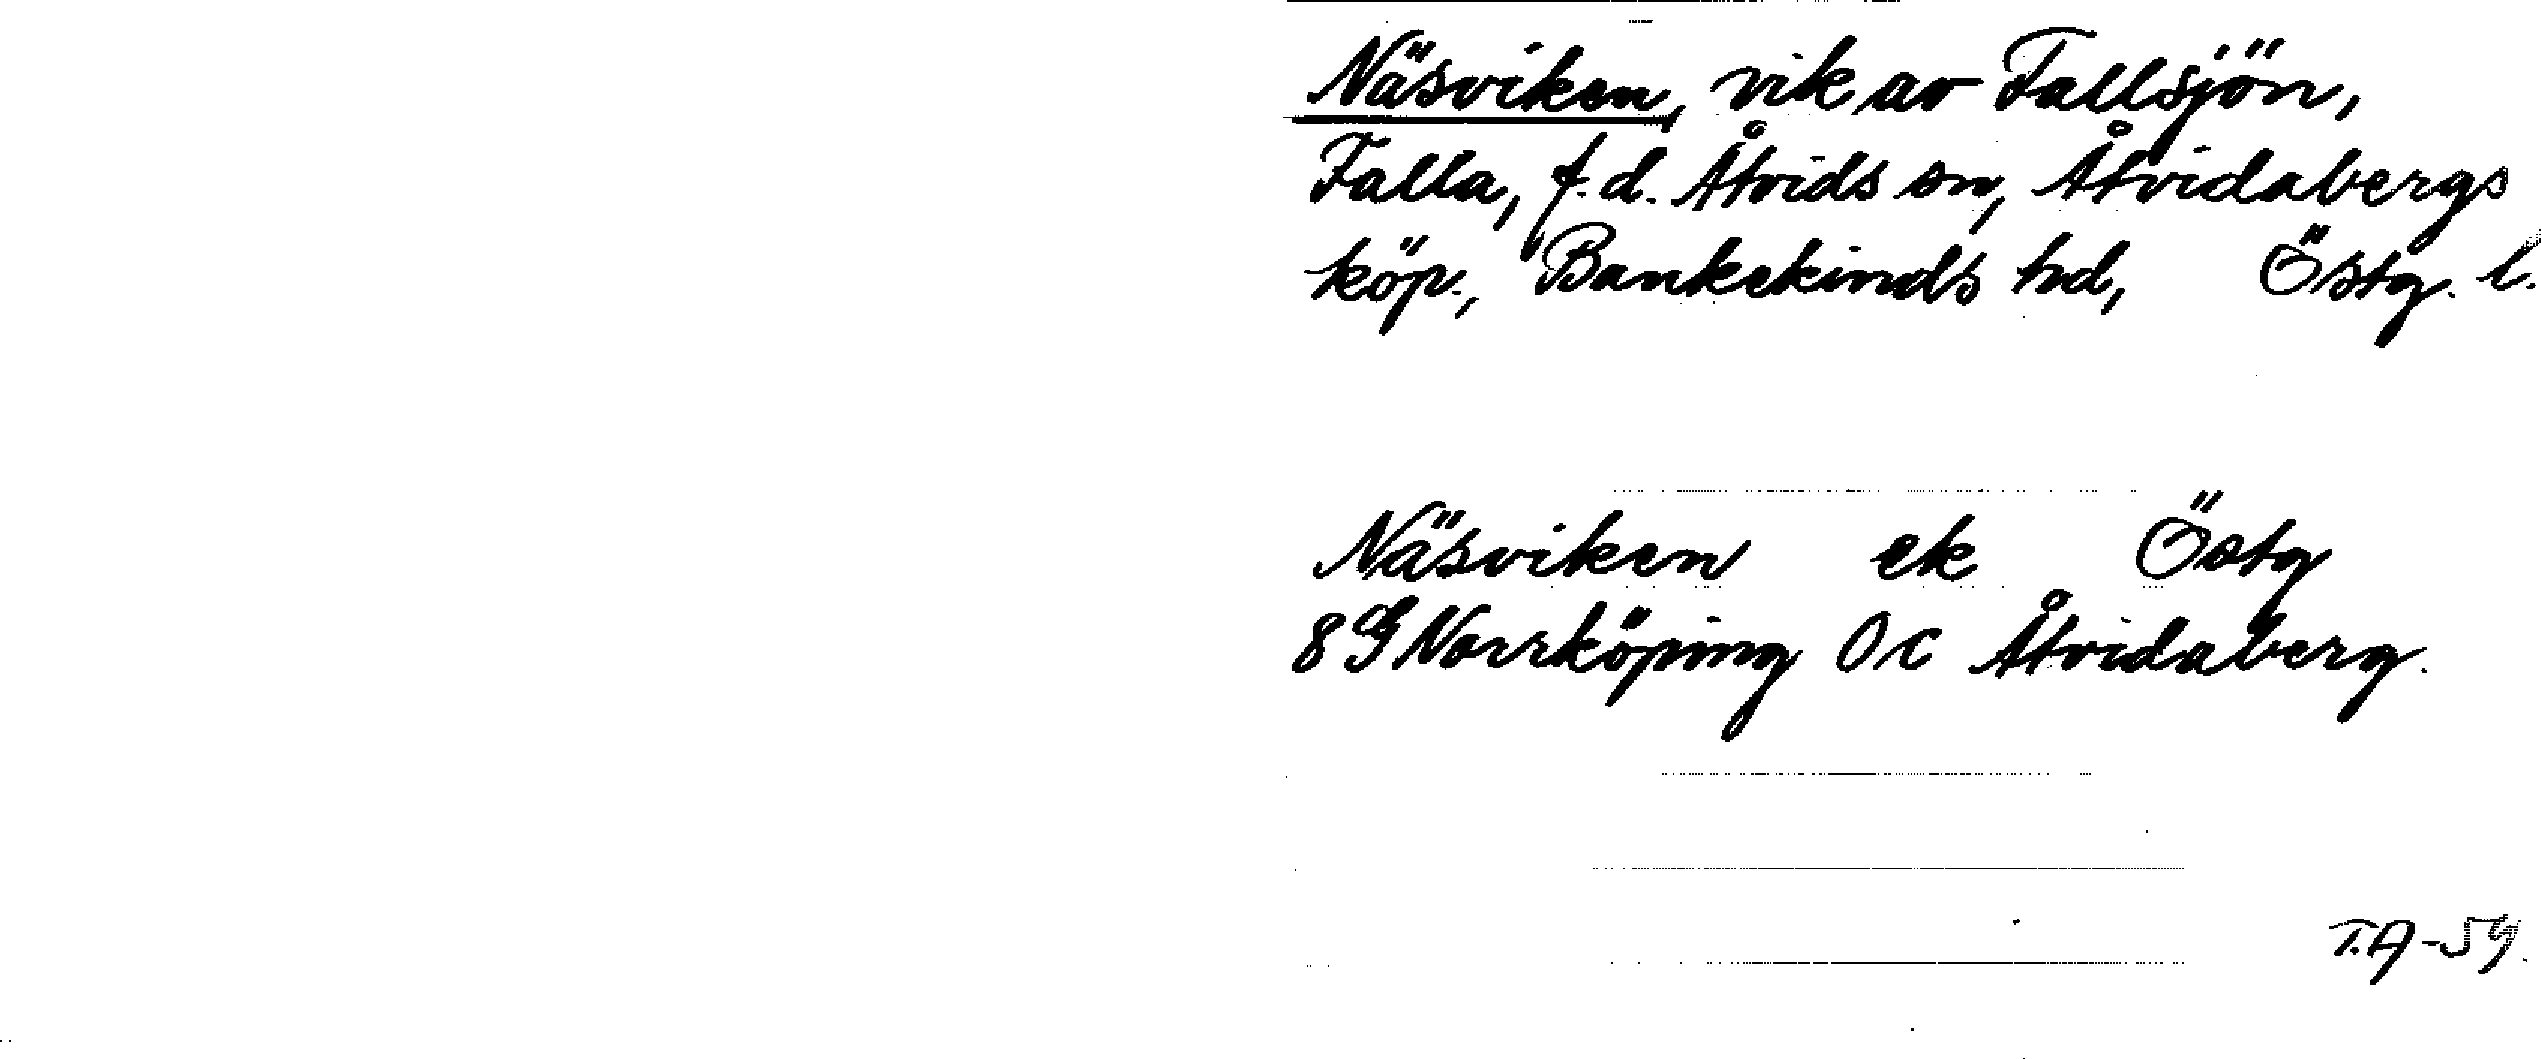 Näsviken, vik av Fallsjön,
Falla, f.d. Åtvids sn, Åtvidabergs
köp., Bankekinds hd, Östg. l.
Näsviken ek Östg
8G Norrköping 0c Åtvidaberg.
T.A-59.